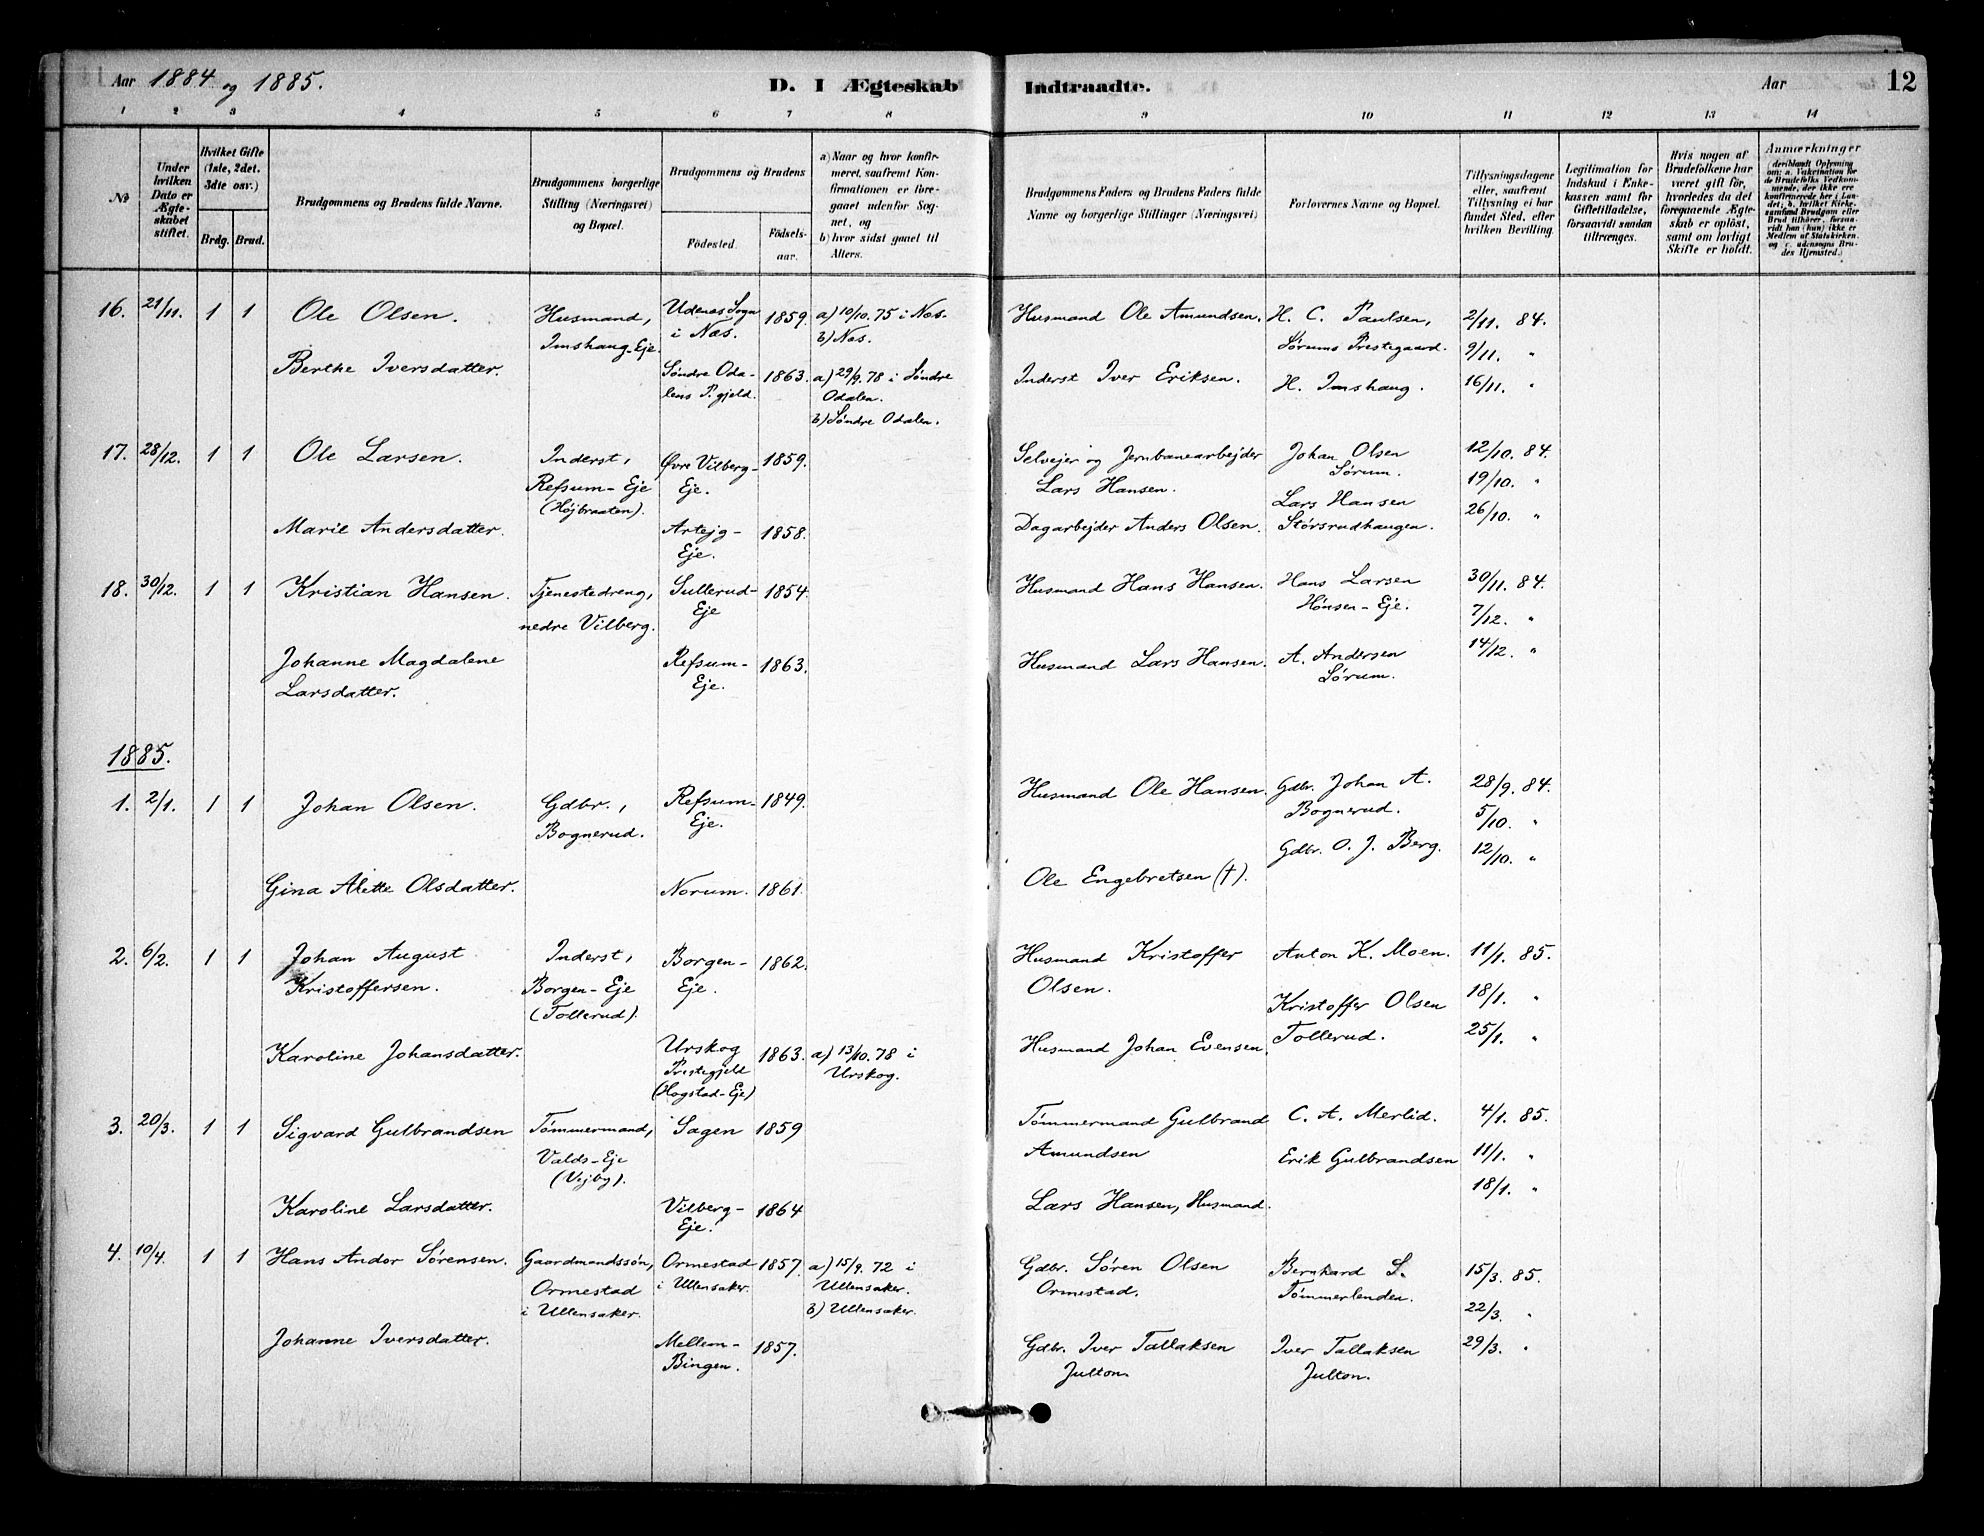 Aar 1884 og 1885. D. I Ægteskab Indtraadte. Aar 12
1 2 3 4 5 6 7 8 9 10 11 12 13 14
No
Under hvilken Dato er Ægteskabet stiftet.
Hvilket Gifte (1ste, 2det. 3dte osv.)
Brdg. Brud.
Brudgommens og Brudens fulde Navne.
Brudgommens borgerlige Stilling (Næringsvei) og Bopæl.
Brudgommens og Brudens
Fødested. Fødselsaar.
a) Naar og hvor konfirmeret, saafremt Konfirmationen er foregaaet udenfor Sognet, og
b) hvor sidst gaaet til Alters.
Brudgommens Faders og Brudens Faders fulde Navne og borgerlige Stillinger (Næringsvei)
Forlovernes Navne og Bopæl.
Tillysningsdagene eller, saafremt Tillysning ei har fundet Sted, efter hvilken Bevilling.
Legitimation for Indskud i Enkekassen samt for Giftetilladelse, forsaavidt saadan tiltrænges.
Hvis nogen af Brudefolkene har været gift før, hvorledes da det foregaaende Ægteskab er opløst, samt om lovligt Skifte er holdt.
Anmærkninger
16. 21/11. 1 1 Ole Olsen. Husmand, Udenes Sogn 1859. a) 10/10. 75 i Nes. Husmand Ole Amundsen. H. C. Paulsen, 2/11. 84.
Imshaug-Eje. i Nes. b) Nes. Sørums Prestegaard. 9/11. "
Berthe Iversdatter. Søndre Oda- 1863. a) 29/9. 78 i Søndre Inderst Iver Eriksen. H. Imshaug. 16/11. "
lens P.gjeld. Odalen.
b) Søndre Odalen.
17. 28/12. 1 1 Ole Larsen. Inderst, Øvre Vilberg- 1859. Selvejer og Jernbanearbejder Johan Olsen 12/10. 84.
Refsum-Eje Eje. Lars Hansen. Sørum. 19/10. "
(Højbraaten). Lars Hansen
Marie Andersdatter. Artejg- 1858. Dagarbejder Anders Olsen. Størsrudhaugen. 26/10. "
Eje.
18. 30/12. 1 1 Kristian Hansen. Tjenestedreng, Sullerud- 1854. Husmand Hans Hansen. Hans Larsen 30/11. 84.
nedre Vilberg. Eje Hønsen-Eje. 7/12. "
Johanne Magdalene Refsum- 1863. Husmand Lars Hansen. A. Andersen 14/12. "
Larsdatter. Eje. Sørum.
1885.
1. 2/1. 1 1 Johan Olsen. Gdbr., Refsum- 1849. Husmand Ole Hansen. Gdbr. Johan A. 28/9. 84.
Bognerud. Eje. Bognerud. 5/10. "
Gdbr. O. J. Berg. 12/10. "
Gina Alette Olsdatter. Norum. 1861. Ole Engebretsen (†).
2. 6/2. 1 1 Johan August Inderst, Borgen- 1862. Husmand Kristoffer Anton K. Moen. 11/1. 85.
Kristoffersen. Borgen-Eje Eje. Olsen. Kristoffer Olsen 18/1. "
(Tollerud).
Karoline Johansdatter. Urskog 1863. a) 13/10. 78 i Husmand Johan Evensen. Tollerud. 25/1. "
Prestegjeld Urskog.
(Hogstad-Eje)
3. 20/3. 1 1 Sigvard Gulbrandsen Tømmermand, Sagen 1859 Tømmermand Gulbrand C. A. Merlid. 4/1. 85.
Valds-Eje Amundsen Erik Gulbrandsen 11/1. "
(Vejby). 18/1. "
Karoline Larsdatter. Vilberg- 1864 Lars Hansen, Husmand.
Eje.
4. 10/4. 1 1 Hans Andor Sørensen. Gaardmandssøn, Ormestad 1857. a) 15/9. 72 i Gdbr. Søren Olsen Bernhard S. 15/3. 85.
Ormestad i Ullensaker. Ullensaker. Ormestad. Tømmerlenden.
i Ullensaker. b) Ullensaker. 22/3. "
Johanne Iversdatter. Mellem- 1857. Gdbr. Iver Tallaksen Iver Tallaksen 29/3. "
Bingen. Julton. Julton.